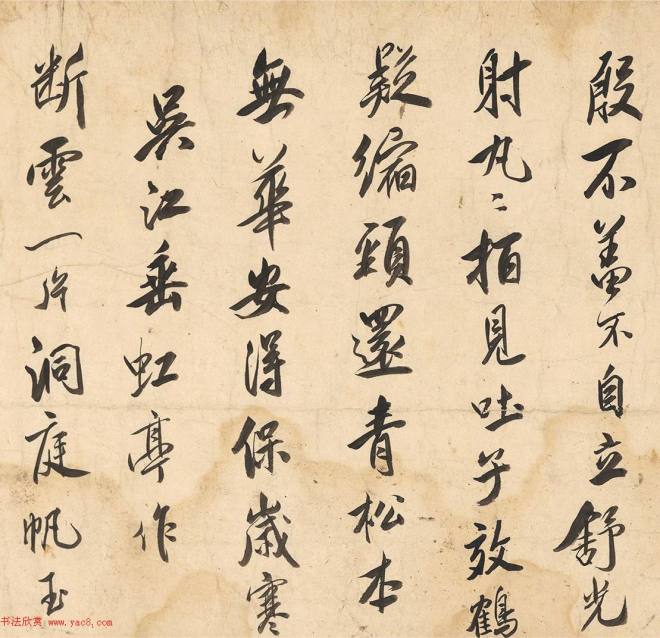 殷不羞不自立舒光
射丸〻栢見吐子效鶴
疑縮頸還青松本
無華安得保歲寒
吳江垂虹亭作
断雲一片洞庭帆玉
书法欣赏 www.yac8.com